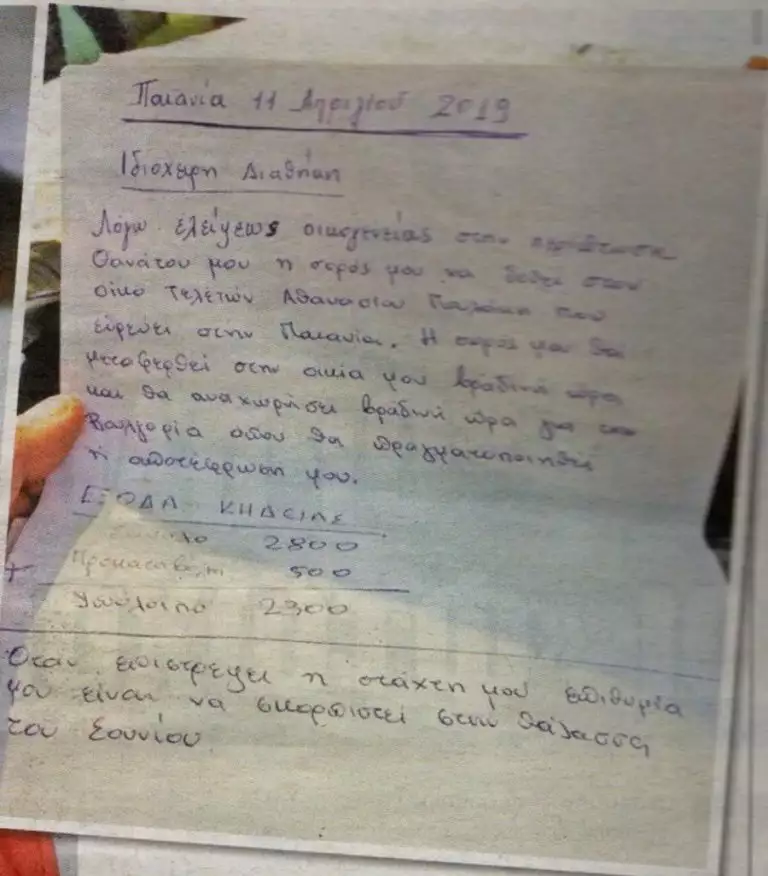 Παιανία 11 Απριλίου 2019
Ιδιόχειρη Διαθήκη
Λόγω ελείψεως οικογενείας στην περίπτωση
θανάτου μου η σορός μου να δεθεί στον
οίκο τελετών Αθανασίου που
εδρεύει στην Παιανία. Η σορός μου θα
μεταφερθεί στην οικία μου βραδινή ώρα
και θα αναχωρήσει βραδινή ώρα για την
Βουλγαρία όπου θα πραγματοποιηθεί
η αποτέφρωση μου.
ΕΞΟΔΑ ΚΗΔΕΙΑΣ
Σύνολο 2800
Προκαταβολή 500
Υπόλοιπο 2300
Όταν επιστρέψει η στάχτη μου επιθυμία
μου είναι να σκορπιστεί στην θάλασσα
του Σουνίου